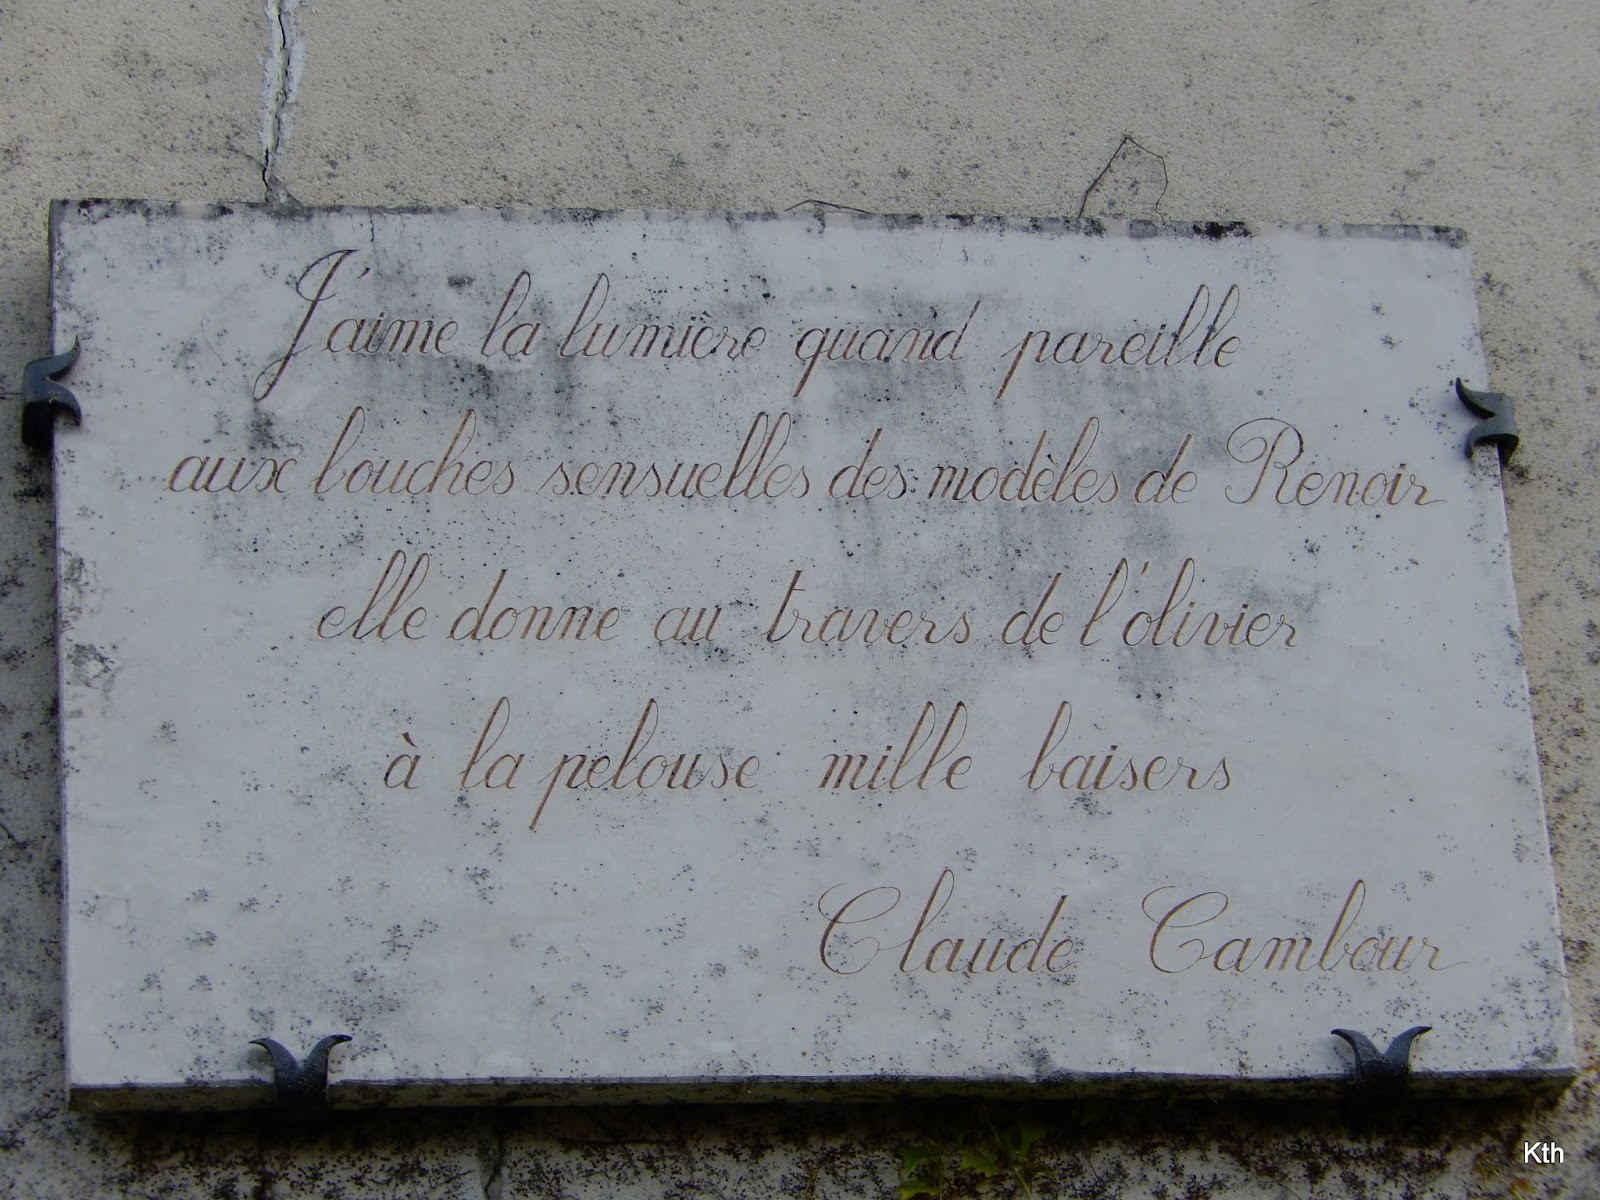 J'aime la lumière quand pareille
aux bouches sensuelles des modèles de Renoir
elle donne au travers de l'olivier
à la pelouse mille baisers
Claude Cambour
Kth